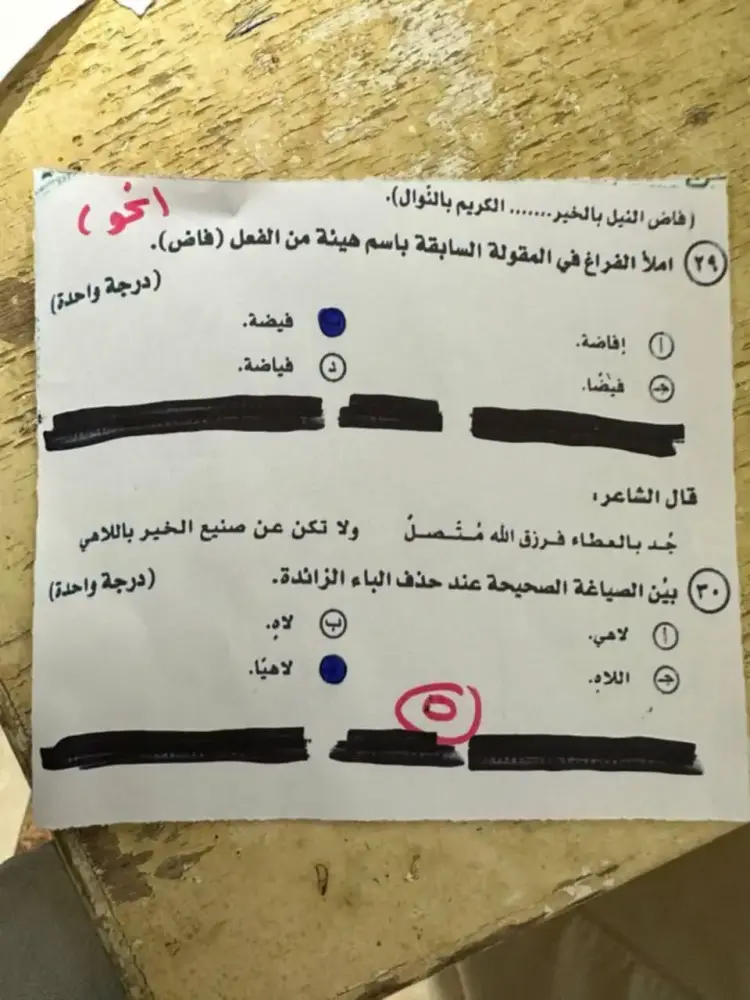 (نحو)
(فاض النيل بالخير....... الكريم بالنوال).
٢٩ املأ الفراغ في المقولة السابقة باسم هيئة من الفعل (فاض).
(درجة واحدة)
أ إفاضة.
فيضة.
جـ فيضًا.
د فياضة.
قال الشاعر:
جُد بالعطاء فرزق الله مُتَّصلٌ ولا تكن عن صنيع الخير باللاهي
٣٠ بيِّن الصياغة الصحيحة عند حذف الباء الزائدة. (درجة واحدة)
أ لاهي.
ب لاهٍ.
جـ اللاهِ.
لاهيًا.
٥